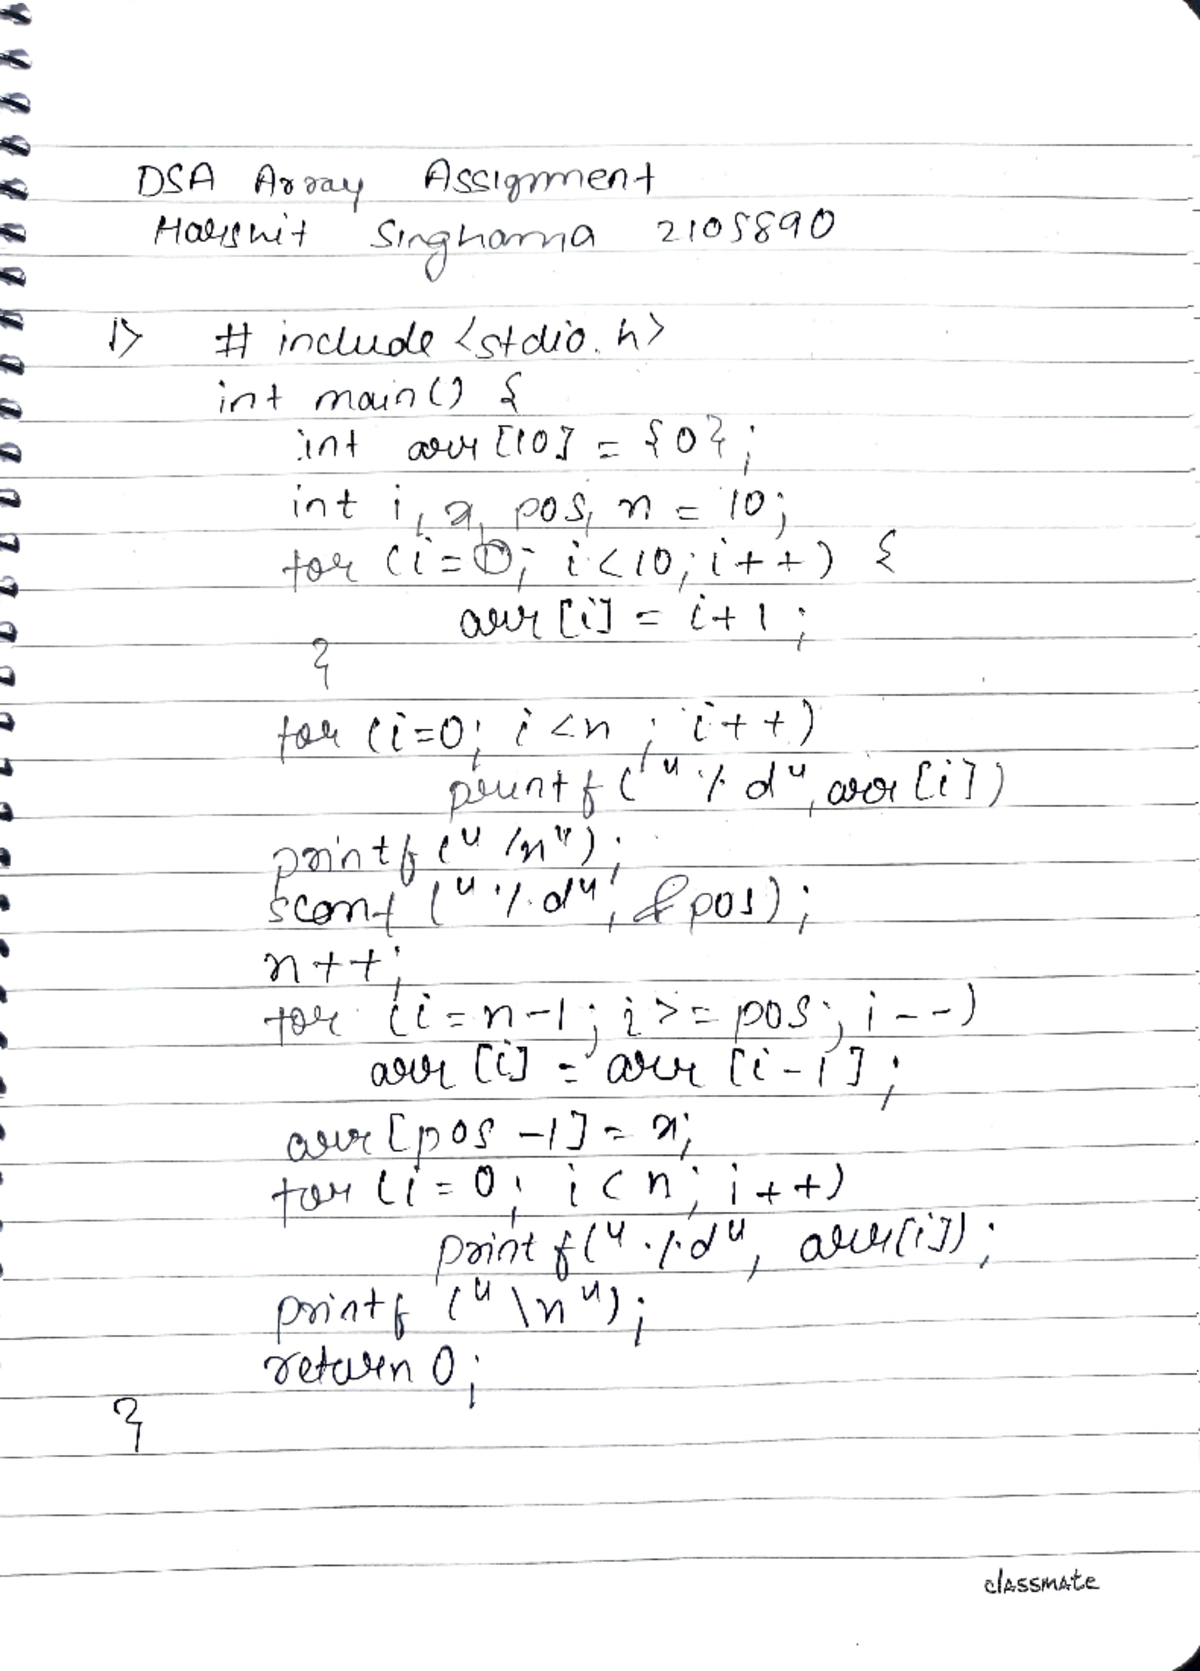 DSA Array Assignment
Harshit Singhania 2105890
1> # include <stdio.h>
int main() {
int arr [10] = {0};
int i, x, pos, n = 10;
for (i=0; i<10; i++) {
arr [i] = i+1;
}
for (i=0; i<n; i++)
printf ("%d", arr [i])
printf ("/n");
scanf ("%d", &pos);
n++;
for (i=n-1; i>=pos; i--)
arr [i] = arr [i-1];
arr[pos-1] = x;
for (i=0; i<n; i++)
printf ("%d", arr[i]);
printf ("\n");
return 0;
}
classmate